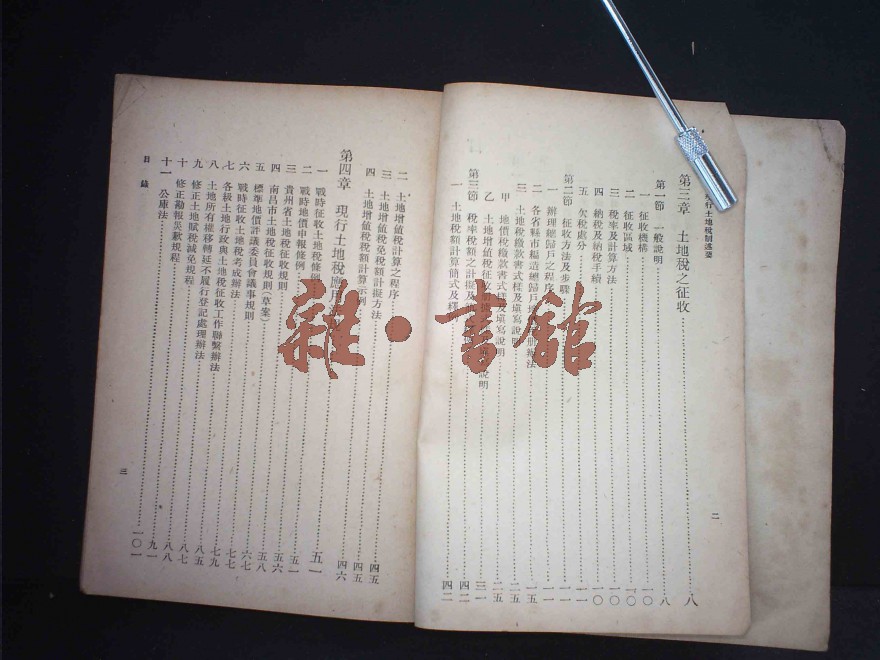 現行土地稅制述要
第三章 土地稅之征收 八
第一節 一般說明 八
一 征收機構 一〇
二 征收區域 一〇
三 稅率及計算方法 一〇
四 納稅及納稅手續 一〇
五 欠稅處分 一一
第二節 征收方法及步驟 一一
一 辦理總歸戶之程序 一一
二 各省縣市編造總歸戶 辦法 一五
三 土地稅繳款書式樣及填寫說明 二五
甲 地價稅繳款書式樣及填寫說明 二五
乙 土地增值稅征收 說明 三一
第三節 稅率稅額之計擬及 四二
一 土地稅額計算簡式及 四二
二
二 土地增值稅計算之程序 四五
三 土地增值稅免稅額計擬方法 四五
四 土地增值稅稅額計算示例 四六
第四章 現行土地稅應用 五一
一 戰時征收土地稅條例 五一
二 戰時地價申報條例 五一
三 貴州省土地稅征收規則 五六
四 南昌市土地稅征收規則(草案) 五八
五 標準地價評議委員會議事規則 六七
六 戰時征收土地稅考成辦法 七七
七 各級土地行政與土地稅征收工作聯繫辦法 七九
八 土地所有權移轉延不履行登記處理辦法 八五
九 修正土地賦稅減免規程 八七
十 修正勘報災歉規程 八八
十一 公庫法 九一
一〇一
目錄
三
雜·書館